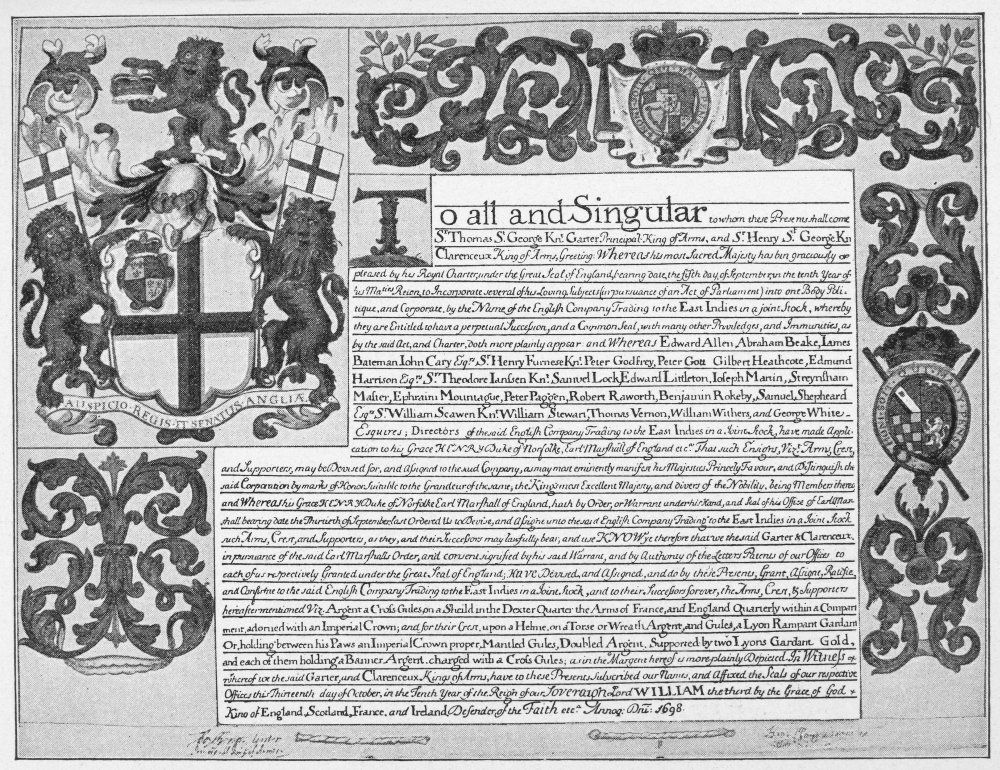 To all and Singular to whom these Presents shall come
Sr. Thomas St. George Knt. Garter Principal King of Arms, and Sr. Henry St. George Kn
Clarenceux King of Arms, Greeting. Whereas his most Sacred Majesty has been graciously
pleased by his Royal Charter, under the Great Seal of England, bearing date, the fifth day, of September, in the tenth Year of
his Maties Reign, to Incorporate several of his Loving Subjects (in pursuance of an Act of Parliament) into one Body Poli-
tique, and Corporate, by the Name of the English Company Trading to the East Indies in a joint Stock, whereby
they are Entitled to have a perpetual Succession, and a Common Seal, with many other Priviledges, and Immunities, as
by the said Act, and Charter, doth more plainly appear and Whereas Edward Allen, Abraham Beake, Iames
Bateman, Iohn Cary Esqrs. Sr. Henry Furnese Knt. Peter Godfrey, Peter Gott Gilbert Heathcote, Edmund
Harrison Esqrs. Sr. Theodore Iansen Knt. Samuel Lock, Edward Littleton, Ioseph Martin, Streynsham
Master, Ephraim Mountague, Peter Paggen, Robert Raworth, Benjamin Rokeby, Samuel Shepheard
Esqrs. Sr. William Scawen Knt. William Stewart, Thomas Vernon, William Withers, and George White
Esquires; Directors of the said English Company Trading to the East Indies in a Ioint Stock, have made Appli-
cation to his Grace HENRY Duke of Norfolke, Earl Marshall of England etca. That such Ensigns, Vizt. Arms, Crest,
and Supporters, may be Devised for, and Assigned to the said Company, as may most eminently manifest his Majesties Princely Favour, and Distinguish the
said Corporation by marks of Honor Suitable to the Grandeur of the same, the Kings most Excellent Majesty, and divers of the Nobility, being Members thereof
and Whereas his Grace HENRY Duke of Norfolke Earl Marshall of England, hath by Order, or Warrant under his Hand, and Seal of his Office of Earl Mar-
shall bearing date the Thirtieth of September last Ordered Us to Devise, and Assigne unto the said English Company Trading to the East Indies in a Joint Stock
such Arms, Crest, and Supporters, as they, and their Successors may lawfully bear, and use KNOW ye therefore that we the said Garter & Clarenceux,
in pursuance of the said Earl Marshalls Order, and consent signified by his said Warrant, and by Authority of the Letters Patents of our Offices to
each of us respectively Granted under the Great Seal of England; Have Devised, and Assigned, and do by these Presents, Grant, Assign, Ratifie,
and Confirme to the said English Company Trading to the East Indies in a Joint Stock, and to their Successors forever, the Arms, Crest, & Supporters
hereafter mentioned Viz. Argent a Cross Gules, on a Sheild in the Dexter Quarter the Arms of France, and England Quarterly within a Compart-
ment, adorned with an Imperial Crown; and for their Crest, upon a Helme, on a Torse or Wreath Argent, and Gules, a Lyon Rampant Gardant
Or, holding between his Paws an Imperial Crown proper, Mantled Gules, Doubled Argent, Supported by two Lyons Gardant Gold,
and each of them holding a Banner Argent charged with a Cross Gules; as in the Margent hereof is more plainly Depicted. In Witness of
whereof we the said Garter, and Clarenceux Kings of Arms, have to these Presents Subscribed our Names, and Affixed the Seals of our respective
Offices this Thirteenth day of October, in the Tenth Year of the Reign of our Soveraign Lord WILLIAM the third by the Grace of God
King of England, Scotland, France, and Ireland, Defender of the Faith etca. Annoq: Dni: 1698.
AUSPICIO·REGIS·ET·SENATUS·ANGLIÆ
HONI·SOIT·QUI·MAL·Y·PENSE
HONI·SOIT·QUI·MAL·Y·PENSE